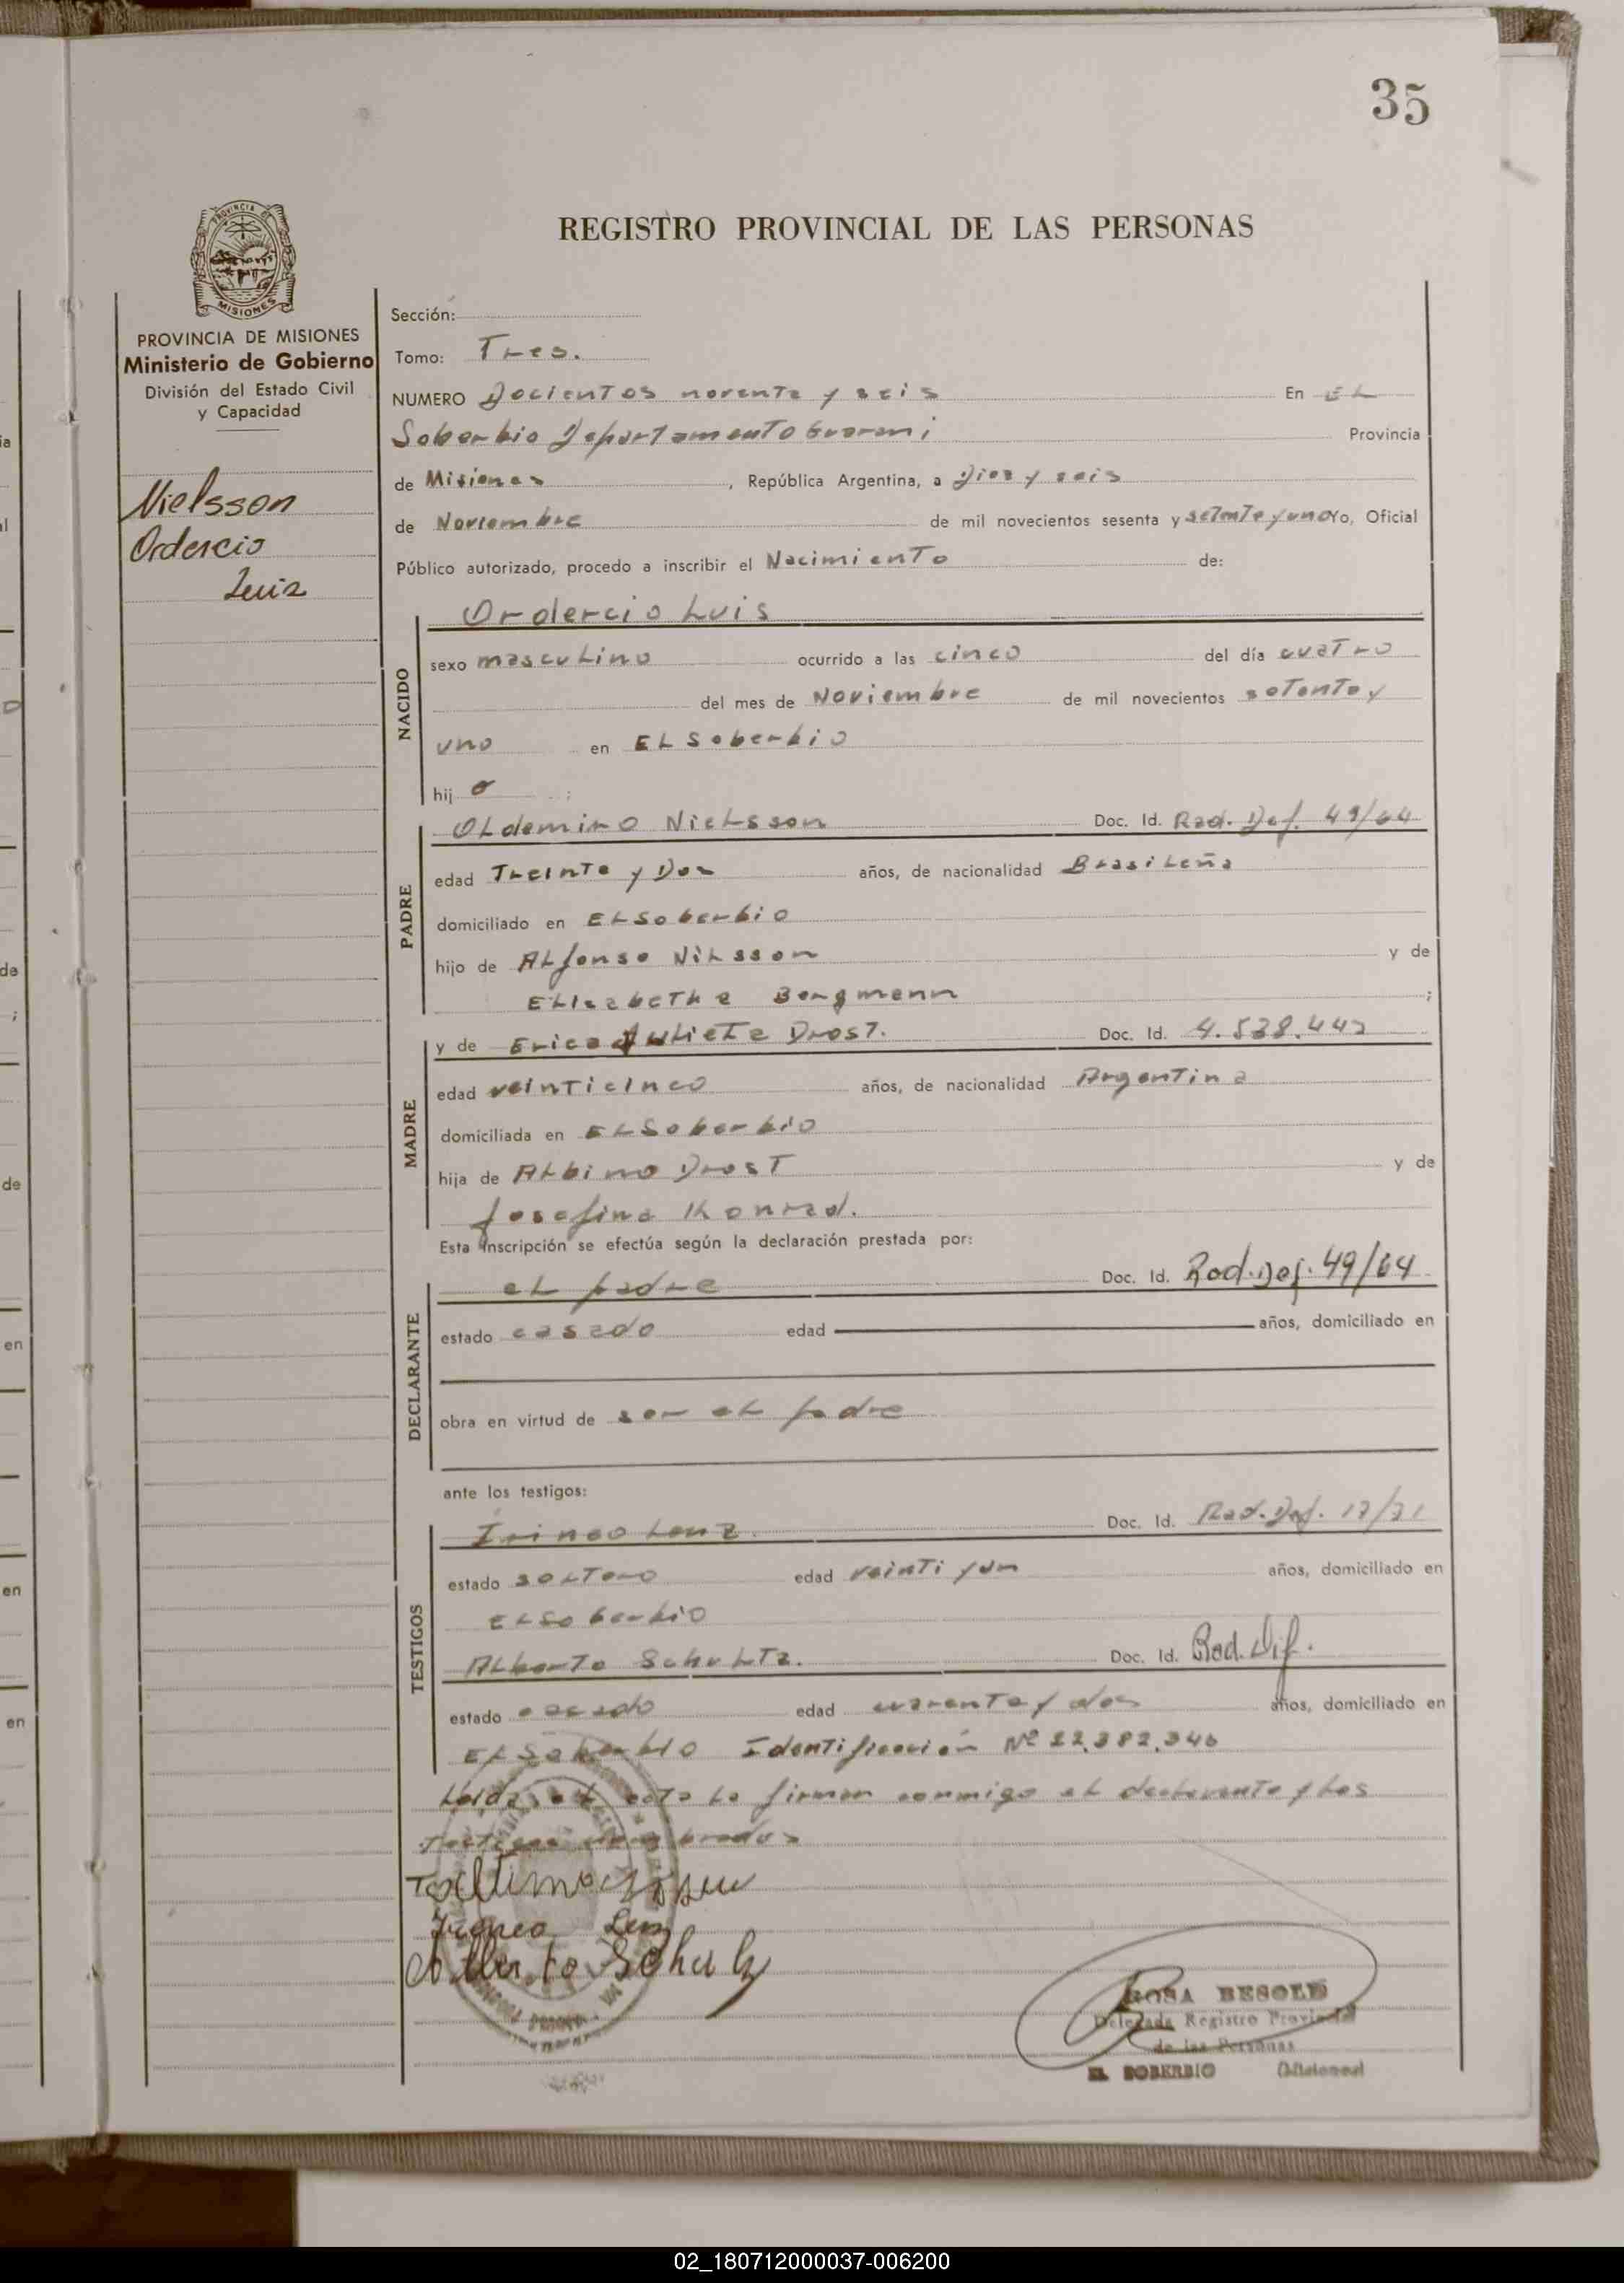 35
PROVINCIA DE
MISIONES
REGISTRO PROVINCIAL DE LAS PERSONAS
PROVINCIA DE MISIONES
Ministerio de Gobierno
División del Estado Civil
y Capacidad
Nielsson
Ordercio
Luis
Sección:
Tomo: Tres.
NUMERO Docientos noventa y seis En EL
Soberbio Departamento Guarani Provincia
de Misiones, República Argentina, a Diez y seis
de Noviembre de mil novecientos sesenta y setenta y uno Yo, Oficial
Público autorizado, procedo a inscribir el Nacimiento de:
NACIDO
Ordercio Luis
sexo masculino ocurrido a las cinco del día cuatro
del mes de Noviembre de mil novecientos setenta y
uno en EL Soberbio
hijo ;
PADRE
Oldemiro Nielsson Doc. Id. Rad. Def. 49/64
edad Treinta y Dos años, de nacionalidad Brasileña
domiciliado en EL Soberbio
hijo de Alfonso Nilsson y de
Elisabetha Bergmann ;
MADRE
y de Erica Julieta Drost. Doc. Id. 4.538.442
edad veinticinco años, de nacionalidad Argentina
domiciliada en EL Soberbio
hija de Albino Drost y de
Josefina Konrad.
Esta inscripción se efectúa según la declaración prestada por:
DECLARANTE
el padre Doc. Id. Rad. Def. 49/64
estado casado edad años, domiciliado en
obra en virtud de ser el padre
ante los testigos:
TESTIGOS
Irineo Lenz. Doc. Id. Rad. Def. 17/71
estado soltero edad veinti y un años, domiciliado en
EL Soberbio
Alberto Schultz. Doc. Id. Rad. Dif.
estado casado edad cuarenta y dos años, domiciliado en
EL Soberbio Identificación Nº 22.382.346
Leida el acta la firman conmigo el declarante y los
testigos nombrados
Irineo Lenz
Alberto Schulz
ROSA BESOLD
Delegada Registro Provincial
de las Personas
EL SOBERBIO (Misiones)
02_180712000037-006200